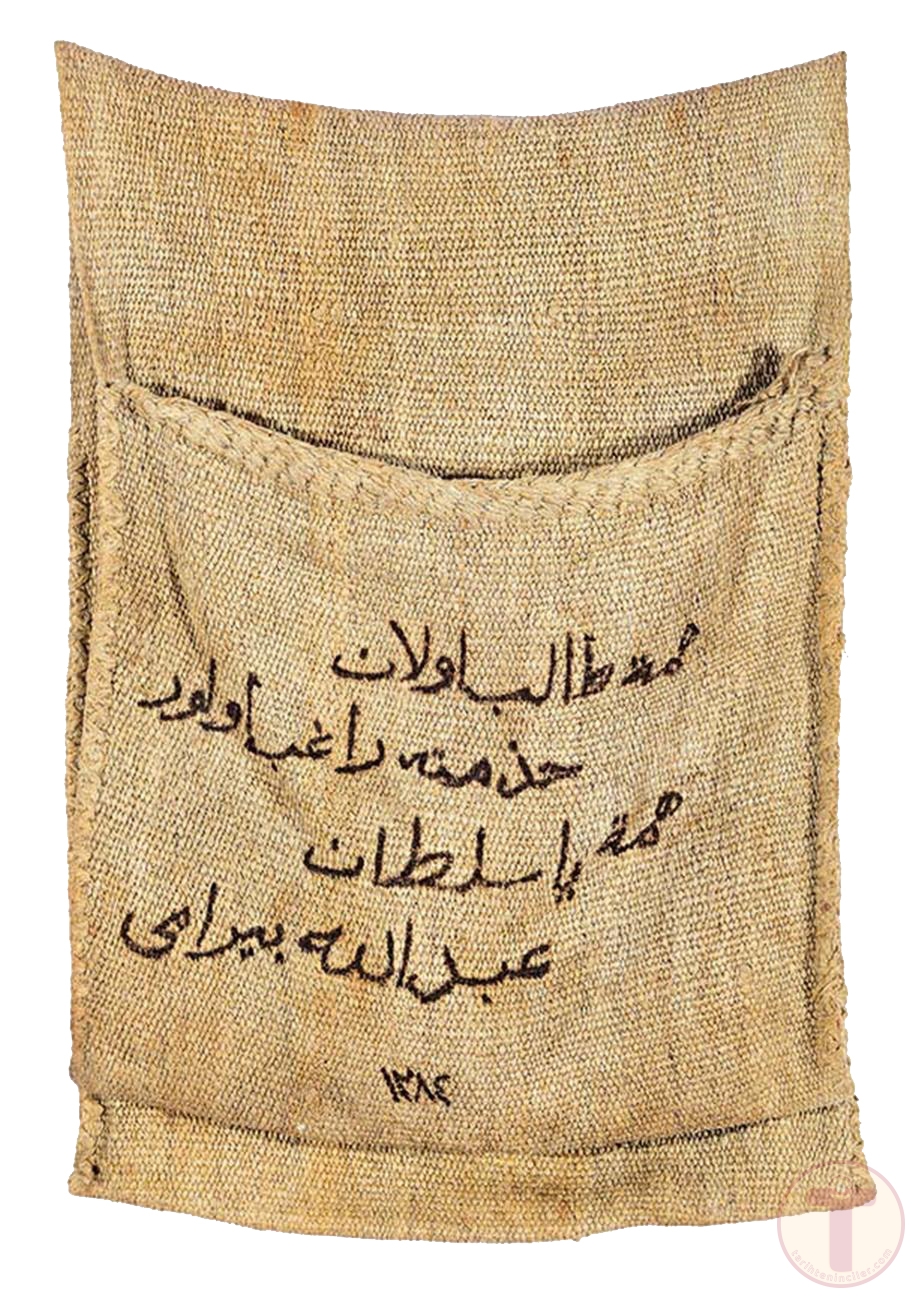 همة طالب اولان
خذمته راغب اولور
همة یا سلطان
عبد الله بیرامی
١٢٨٤
tarihteninciler.com